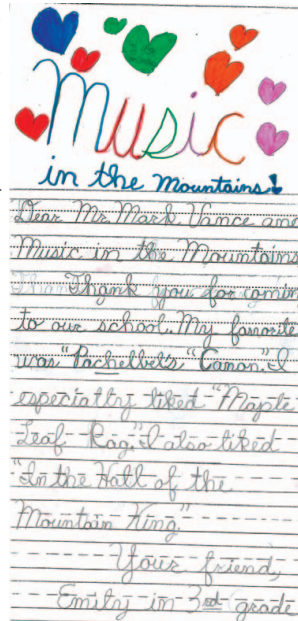 Music
in the Mountains!
Dear Mr. Mark Vance and
Music in the Mountains
Thank you for comin
to our school. My favorite
was "Pachelbel's "Canon". I
especially liked "Maple
Leaf Rag." I also liked
"In the Hall of the
Mountain King"
Your friend,
Emily in 3rd grade